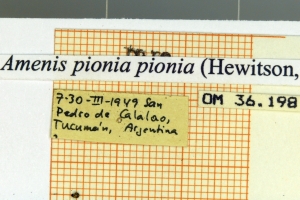 Amenis pionia pionia (Hewitson,
7-30-III-1949 San
Pedro de Calalao,
Tucumán, Argentina
OM 36.198